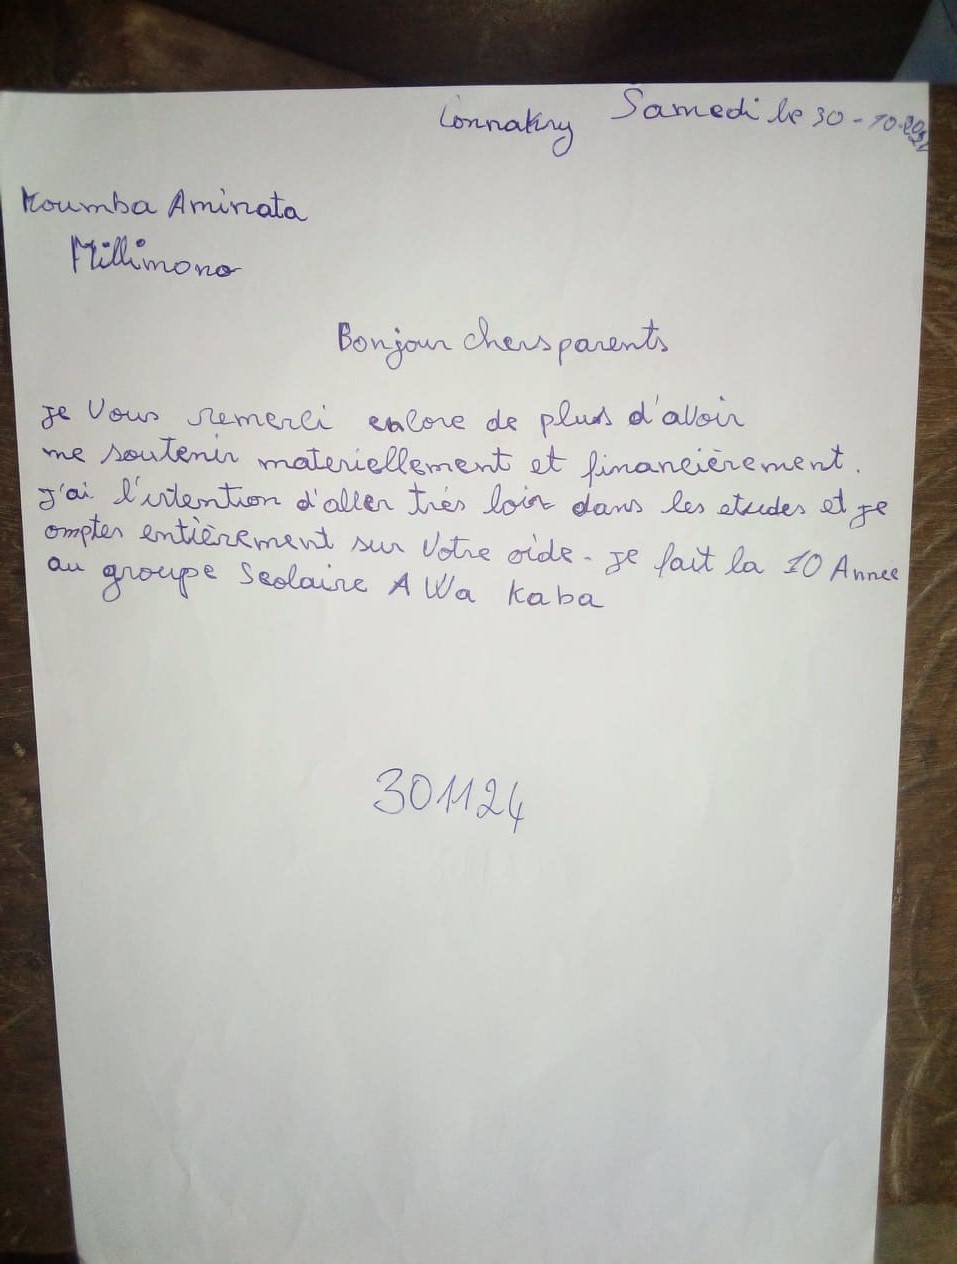 Connakry Samedi le 30-10-2021
Koumba Aminata
Millimono
Bonjour chers parents
je Vous remerci encore de plus d'avoir
me soutenir materiellement et financièrement.
j'ai l'intention d'aller très loin dans les etudes et je
omptes entièrement sur Votre aide. je fait la 10 Annee
au groupe Scolaire A Wa Kaba
301124